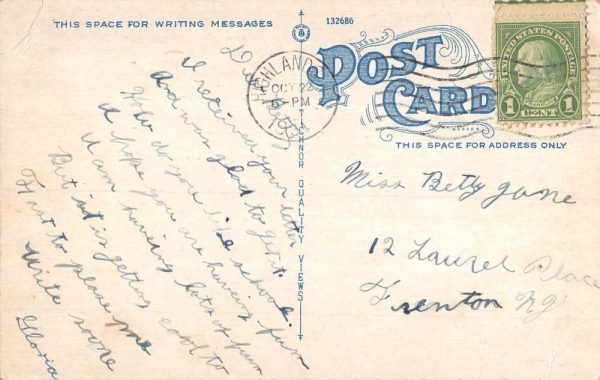 THIS SPACE FOR WRITING MESSAGES
132686
POST
CARD
THIS SPACE FOR ADDRESS ONLY
UNITED STATES POSTAGE
FRANKLIN
1 CENT 1
OCT 22
5-PM
QUALITY VIEWS
Dear Betty
I received your letter
And was glad to get it
How do you like school.
I hope you are having fun
I am having lots of fun
But it is getting cool to
Fast to please me
Write soone
Gloria
Miss Betty Jane
12 Laurel Place
Trenton NJ